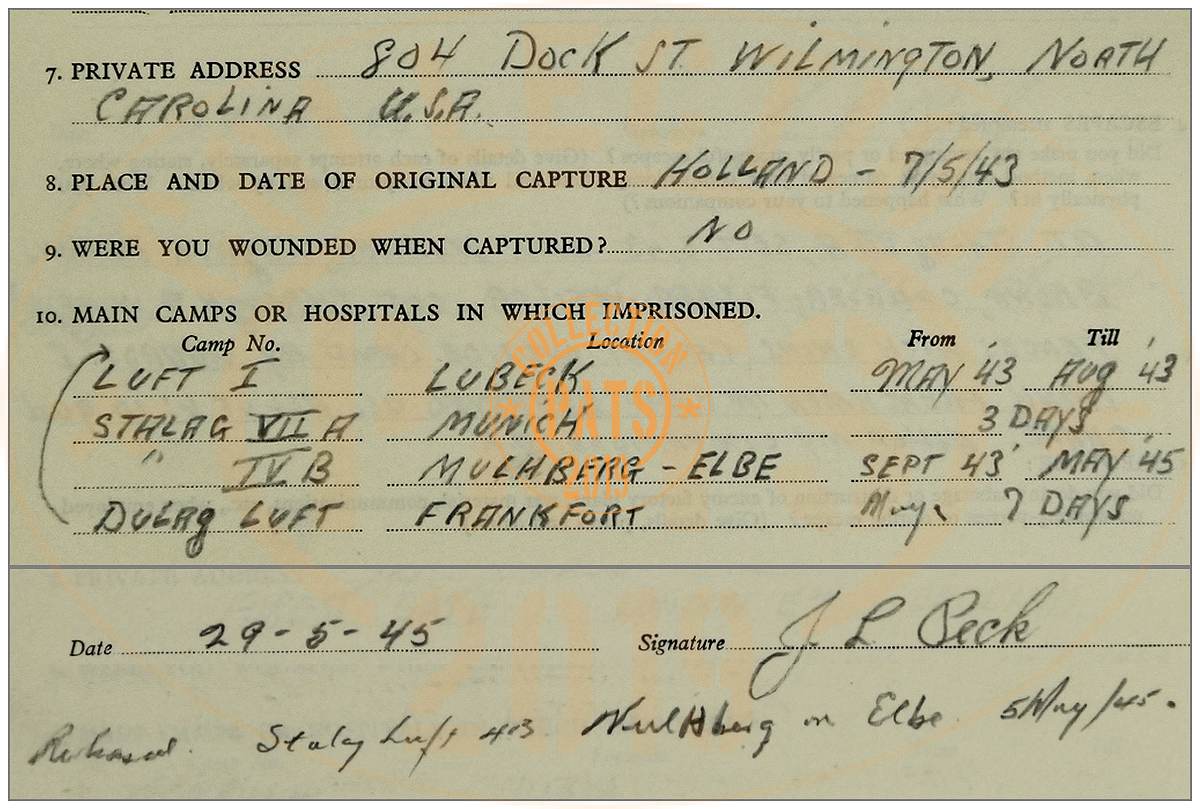 7. PRIVATE ADDRESS 804 DOCK ST. WILMINGTON, NORTH
CAROLINA U.S.A.
8. PLACE AND DATE OF ORIGINAL CAPTURE HOLLAND - 7/5/43
9. WERE YOU WOUNDED WHEN CAPTURED? NO
10. MAIN CAMPS OR HOSPITALS IN WHICH IMPRISONED.
Camp No. Location From Till
LUFT I LUBECK MAY '43 Aug '43
STALAG VII A MUNICH 3 DAYS
" IV B MULHBERG - ELBE SEPT 43' MAY '45
DULAG LUFT FRANKFORT 7 DAYS
COLLECTION
PATS
2019
Date 29-5-45 Signature J L Peck
Released. Stalag Luft 4B Mulhberg on Elbe. 5 May/45.